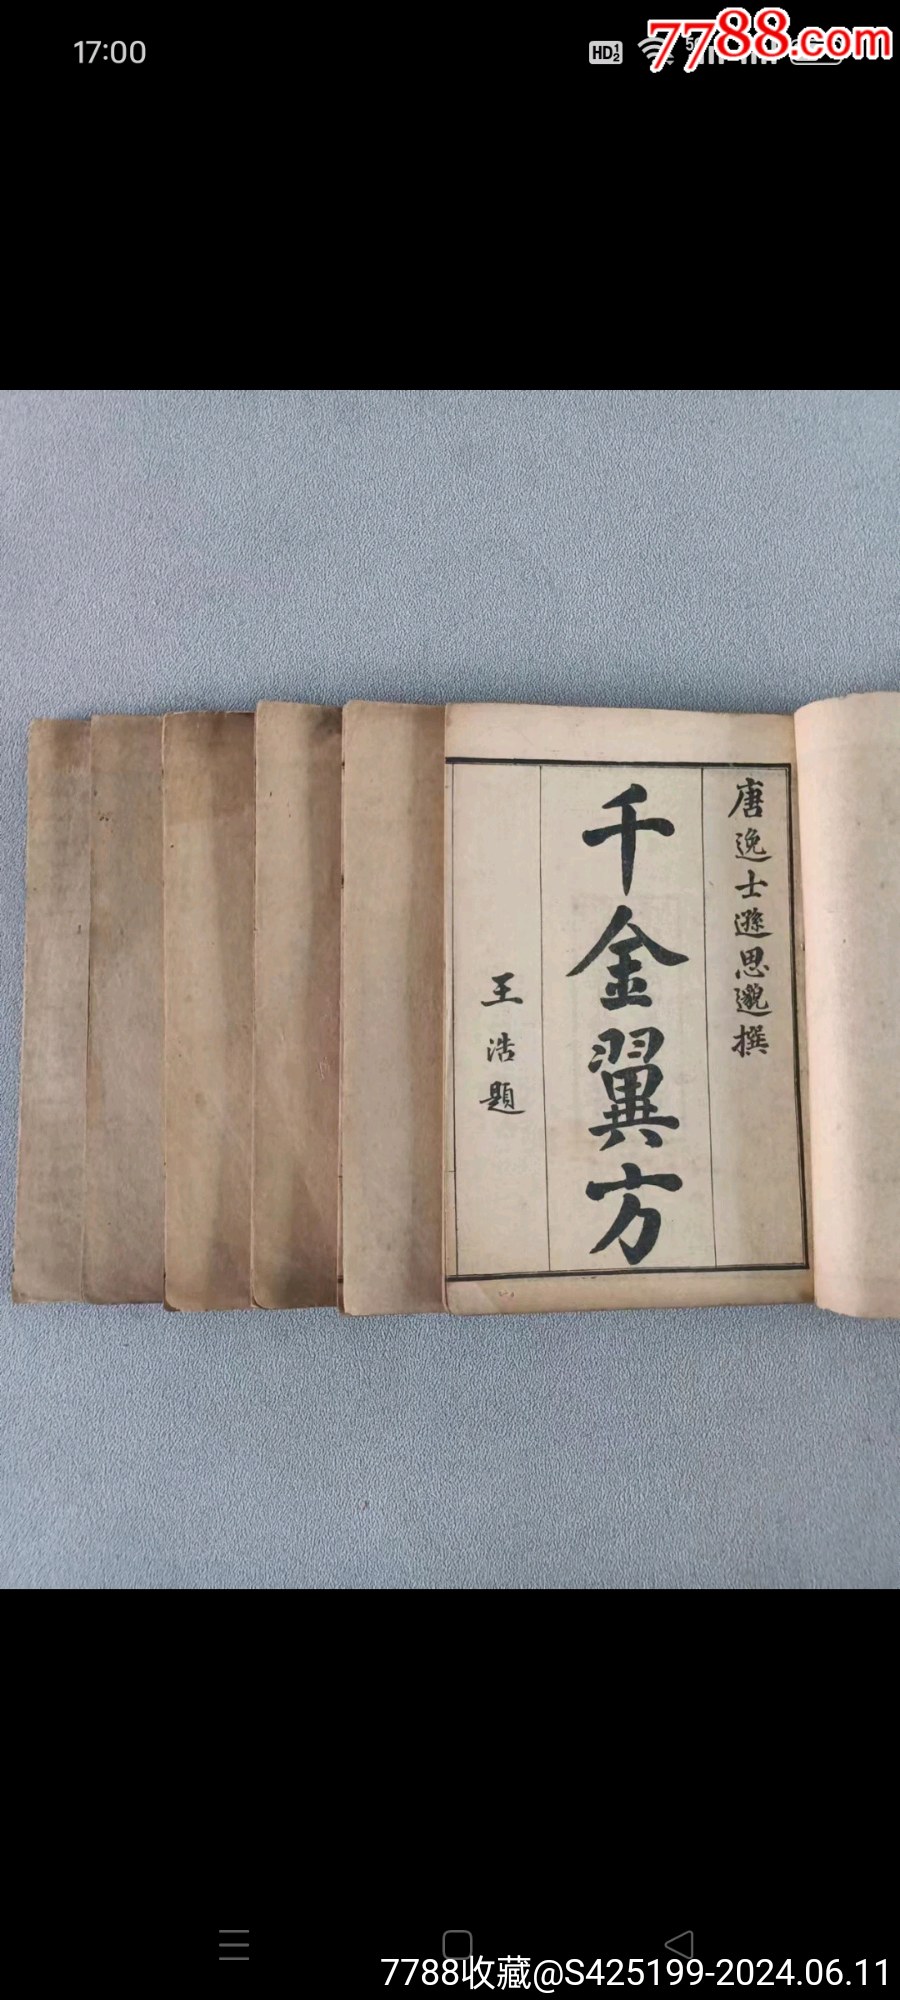 17:00
HD
7788.com
唐逸士遜思邈撰
千金翼方
王浩題
7788收藏@S425199-2024.06.11